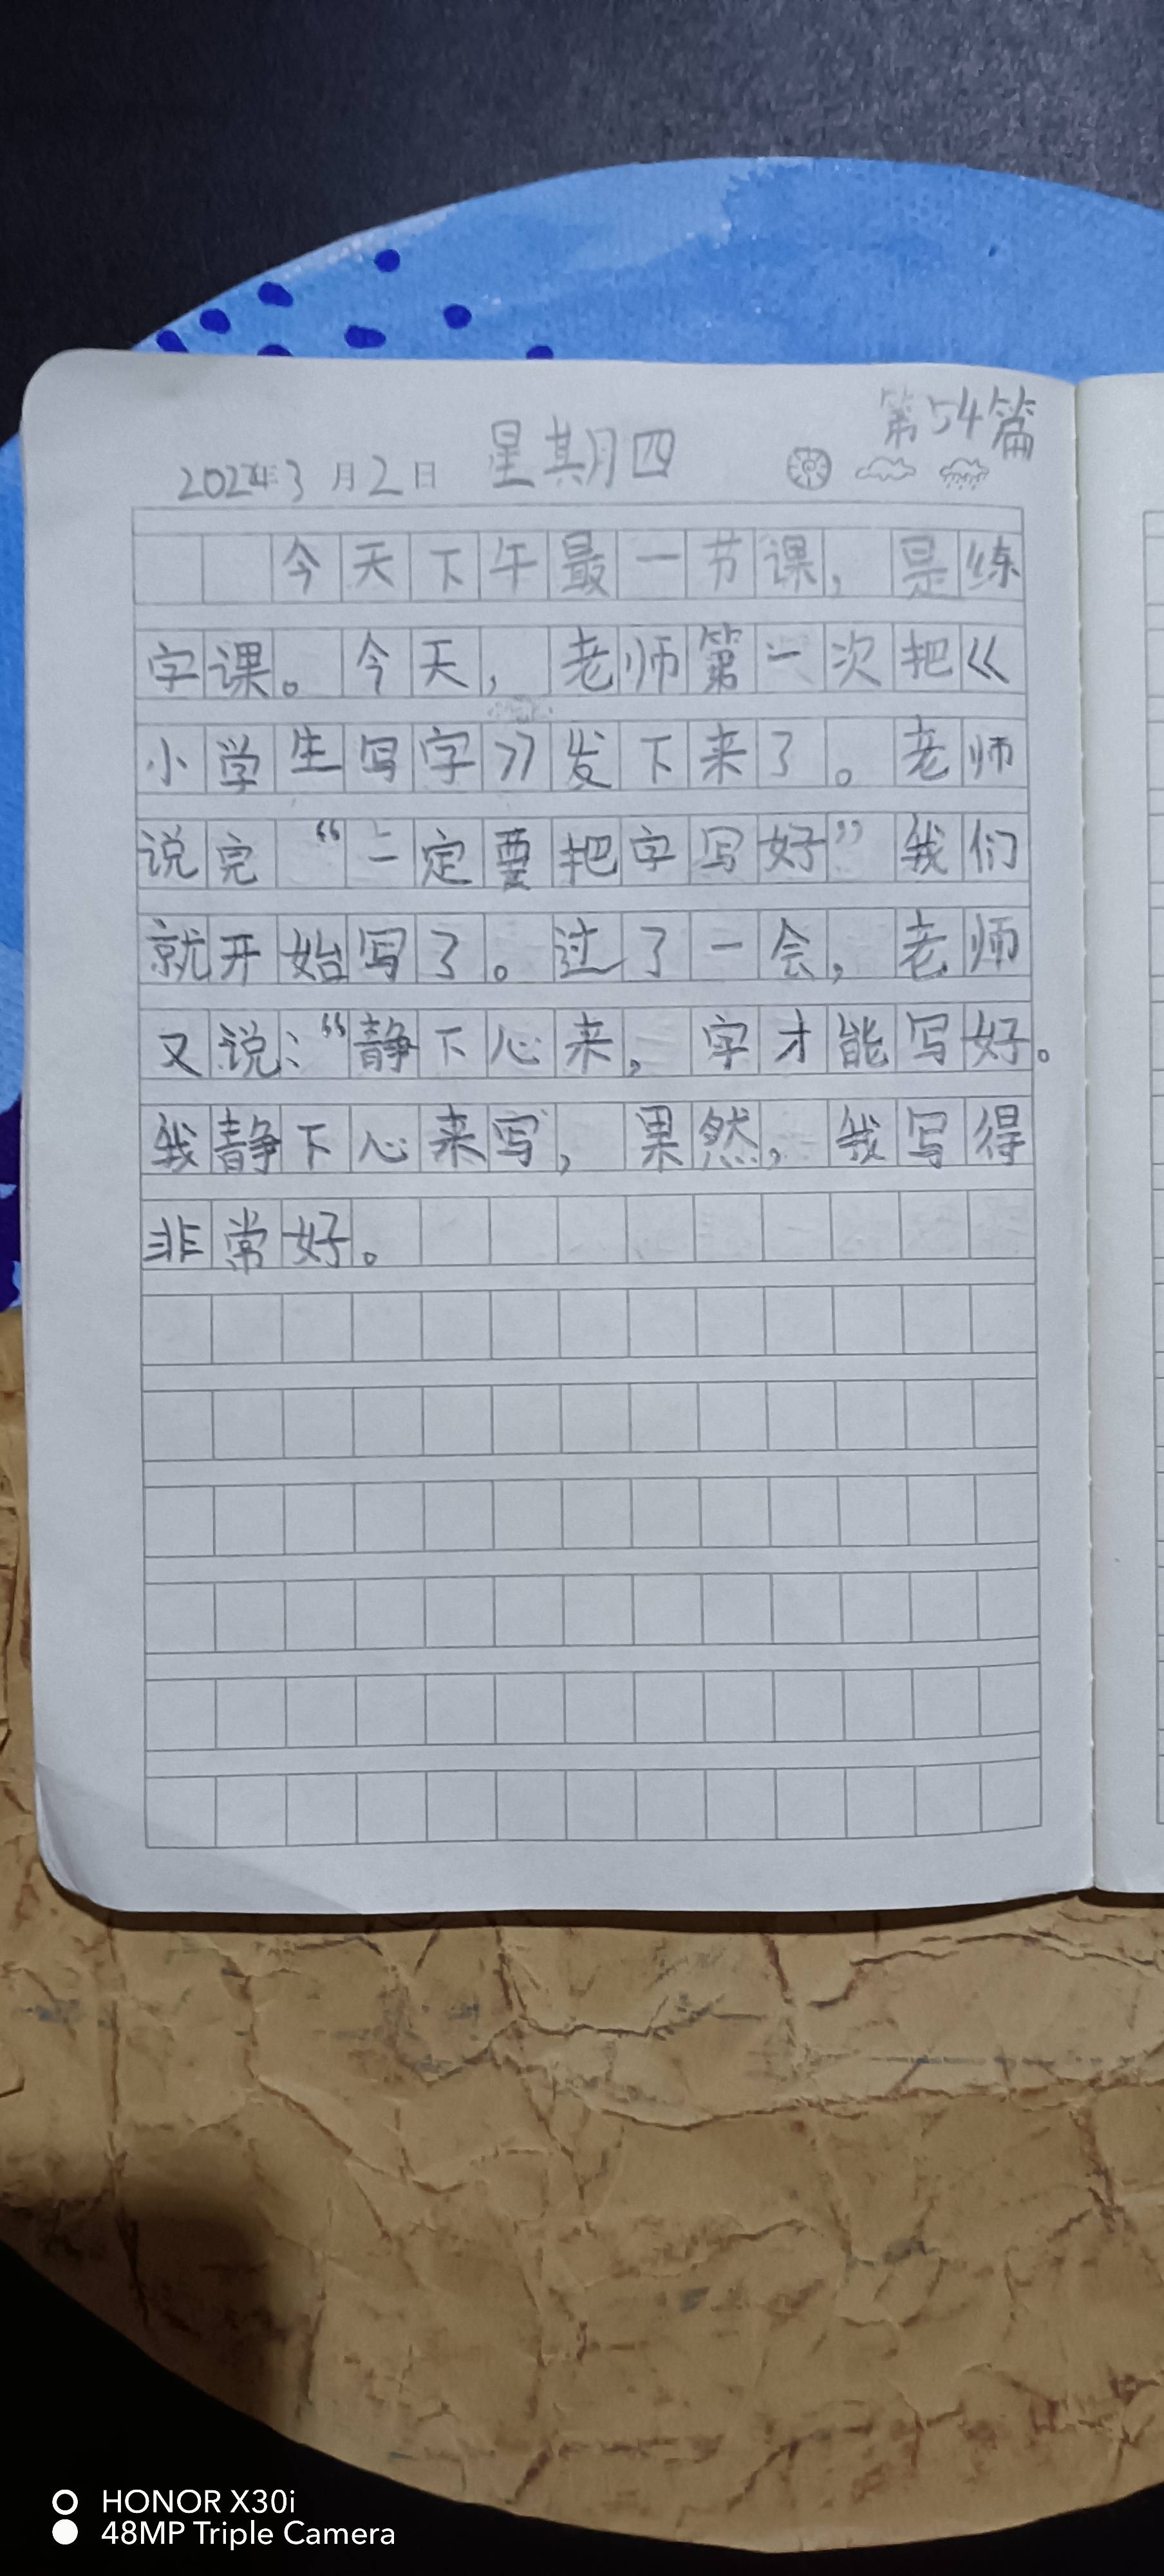 第54篇
2022年3月2日 星期四
今天下午最一节课，是练
字课。今天，老师第一次把《
小学生写字》发下来了。老师
说完“一定要把字写好”我们
就开始写了。过了一会，老师
又说：“静下心来，字才能写好。
我静下心来写，果然，我写得
非常好。
HONOR X30i
48MP Triple Camera